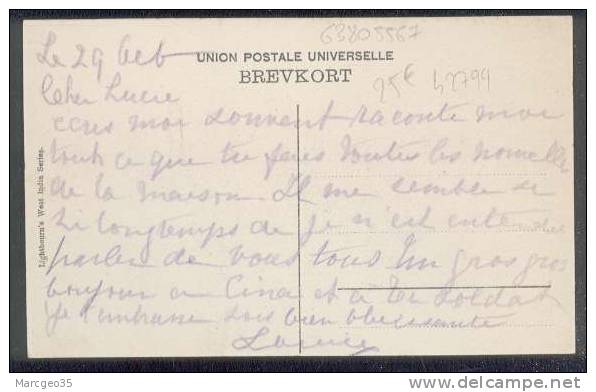 63805567
Le 29 Oct
UNION POSTALE UNIVERSELLE
BREVKORT
25€ 42794
Cher Lucie
ecris moi souvent raconte moi
tout ce que tu fais toutes les nouvelle
de la maison Il me semble si
si longtemps de je n'est entendu
parler de vous tous Un gros gros
bonjour a et a ton soldat
Je t'embrasse sois bien obeissante
Lightbourn's West India Series.
© Marcgeo35
delcampe.net